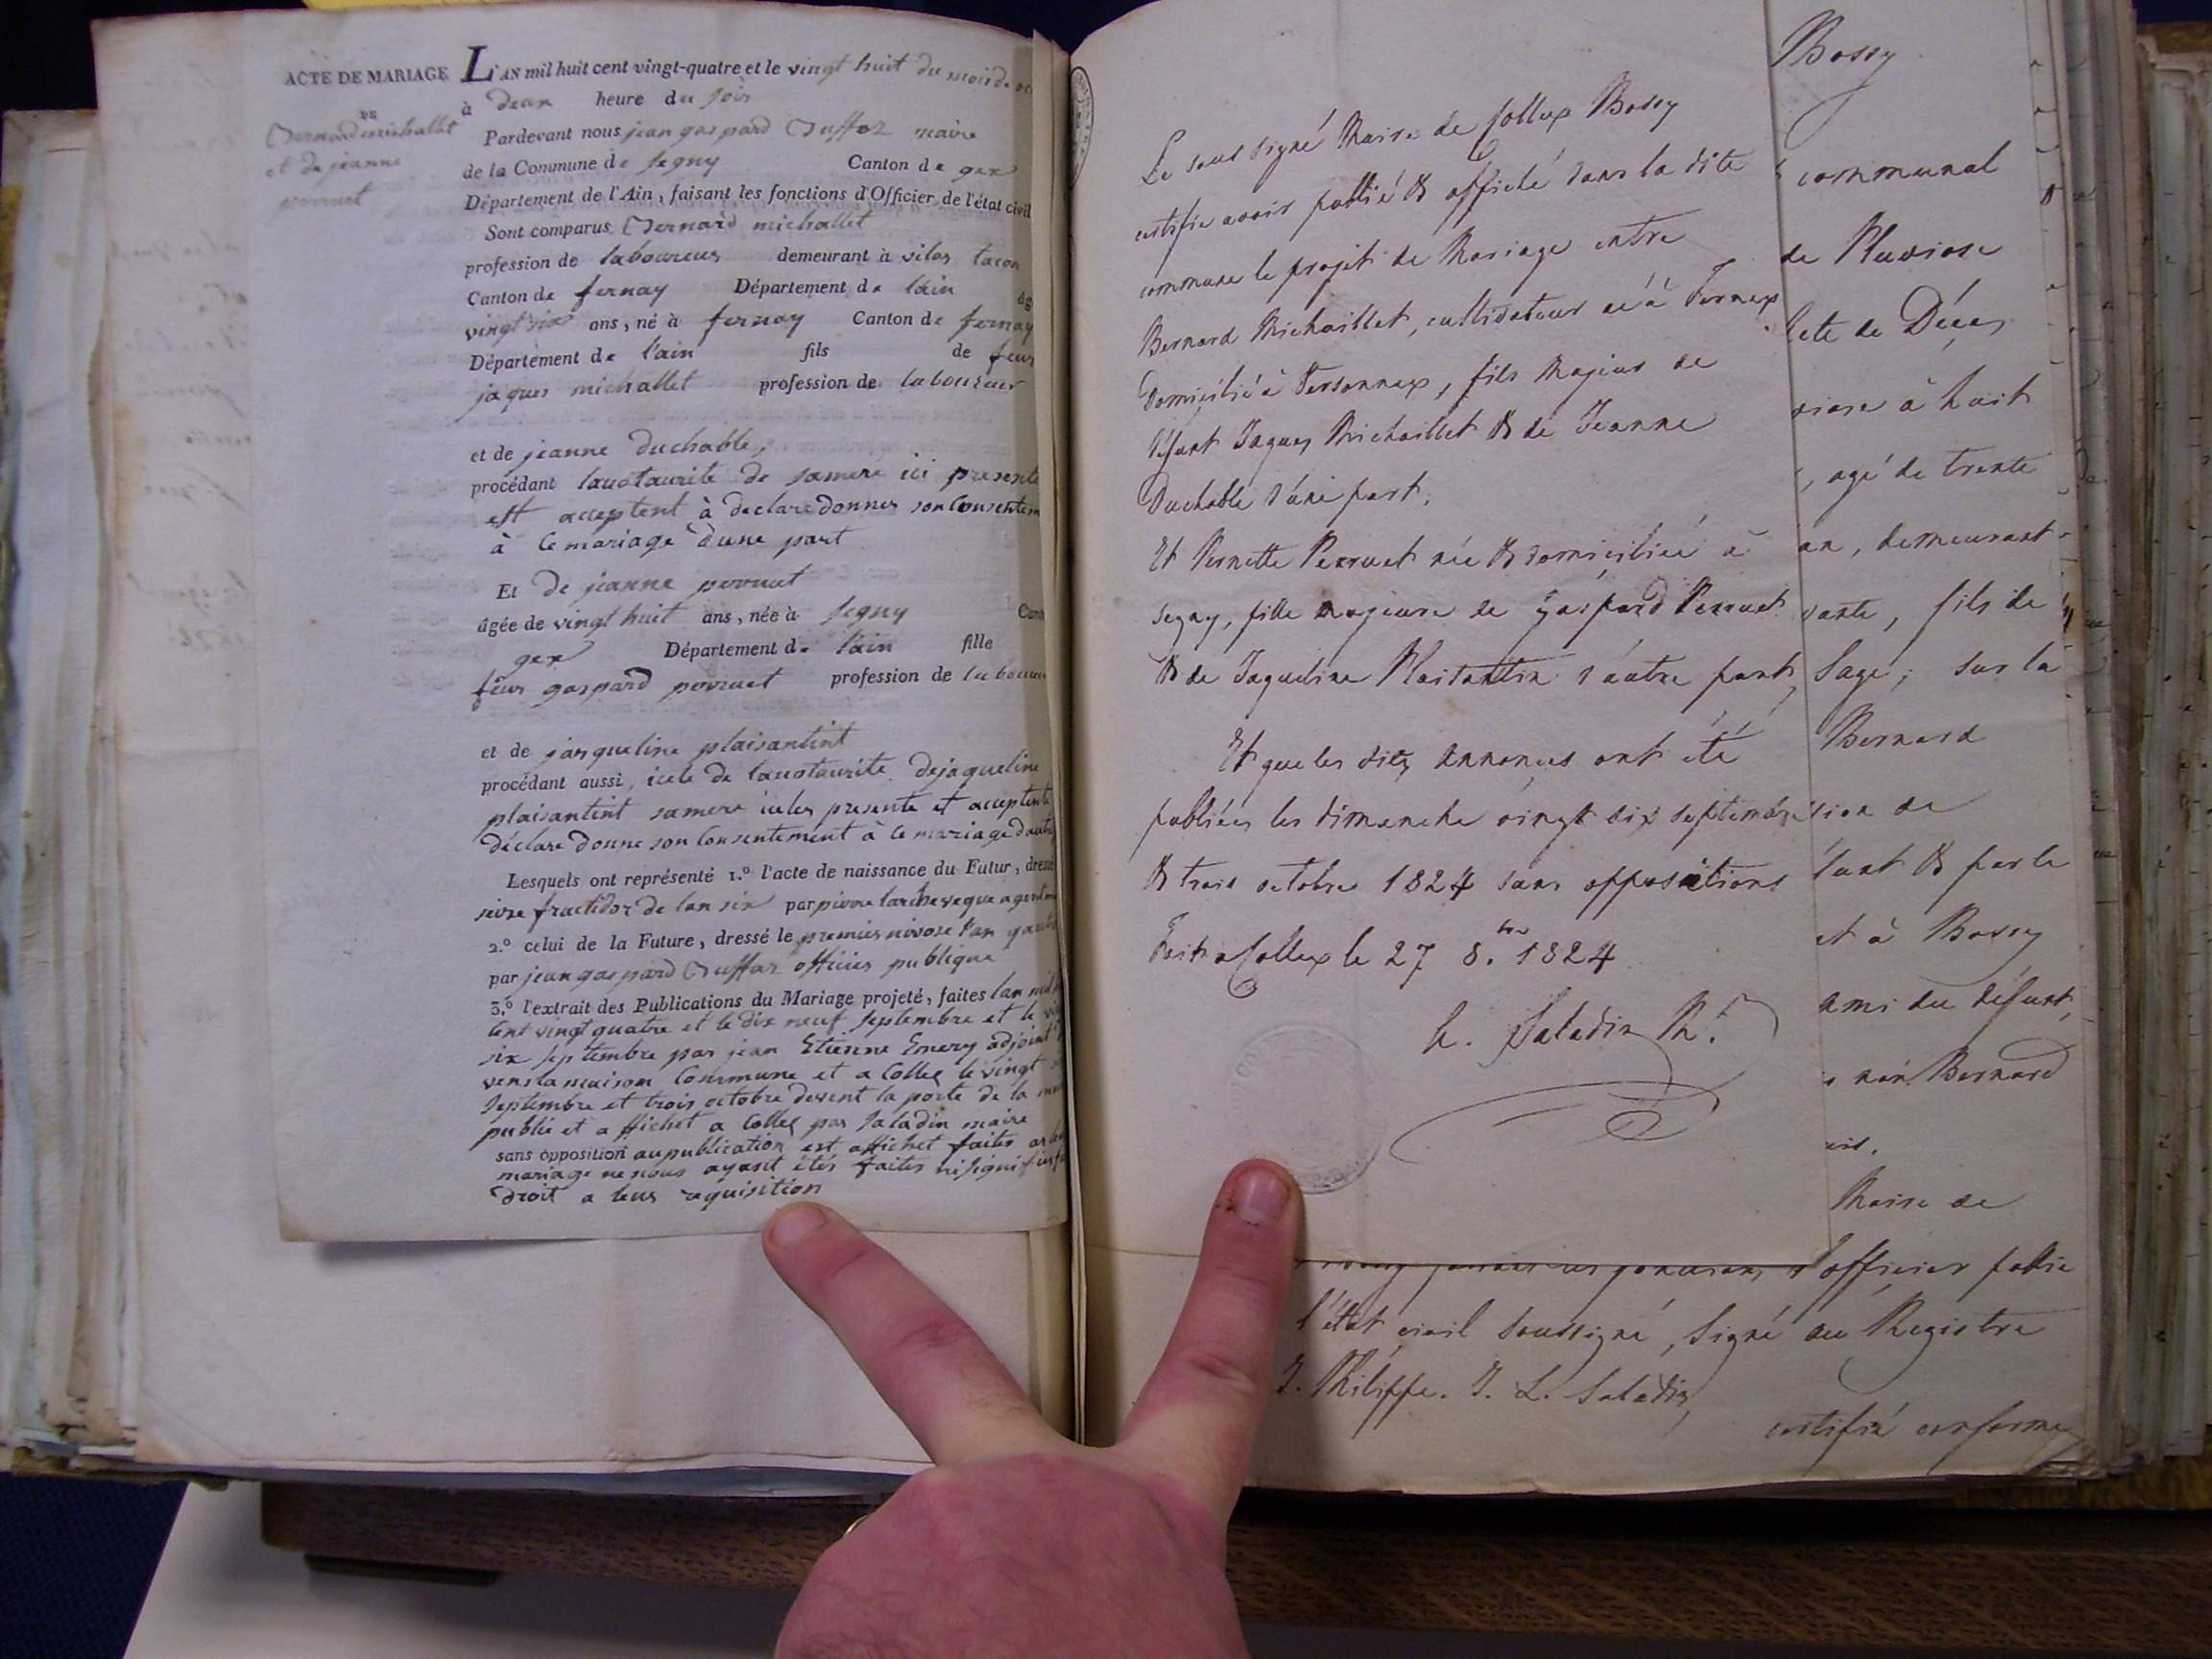 ACTE DE MARIAGE
DE
Bernard michallet
et de jeanne
perruet
L'AN mil huit cent vingt-quatre et le vingt huit du mois de
à deux heure du soir
Pardevant nous jean gaspard maire
de la Commune de Segny Canton de gex
Département de l'Ain, faisant les fonctions d'Officier de l'état civil
Sont comparus Bernard michallet
profession de laboureur demeurant à
Canton de fernay Département de lain
vingt six ans, né à fernay Canton de fernay
Département de l'ain fils de feus
jaques michallet profession de laboureur
et de jeanne duchable,
procédant lauotaurite de samere ici presente
est acceptent à declare donner son Consentem
à ce mariage dune part
Et De jeanne perruet
âgée de vingt huit ans, née à Segny
gex Département de lain fille
feus gaspard perruet profession de
et de jasqueline plaisantint
procédant aussi, icele de lauotaurite dejaqueline
plaisantint samere iceles presente et acceptente
déclare donne son Consentement à ce mariage
Lesquels ont représenté 1.º l'acte de naissance du Futur,
fructidor de lan six par agent
2.º celui de la Future, dressé le premier nivose l'an
par jean gaspard officier publique
3.º l'extrait des Publications du Mariage projeté, faites lan mil
Cent vingt quatre et le dix neuf Septembre et le
six septembre par jean Etienne Emery adjoint
vers la maison Commune et a Collex le vingt
Septembre et trois octobre devent la porte de la
publié et affichet a Collex par Saladin maire
sans opposition au publication est affichet faites
mariage ne nous ayant étés faites ni signifies
droit a leur requisition
Le sous signé Maire de Collex Bossy
certifie avoir publié & affiché dans la dite
commune le projet de Mariage entre
Bernard Michaillet, cultivateur né à Fernex
domicilié à Versonnex, fils Majeur de
défunt Jaques Michaillet & de Jeanne
Duchable d'une part;
Et Pernette Perruet née & domiciliée à
Segny, fille majeure de Gaspard Perruet
& de Jaqueline Plaisantin d'autre part,
Et que les dites annonces ont été
publiées les dimanche vingt six septembre
& trois octobre 1824 sans oppositions
Fait à Collex le 27 8.bre 1824
Saladin M.re
Bossy
communal
de Pluviose
lete de Décés
viose à huit
, agé de trente
an, demeurant
vante, fils de
Sage; sur la
Bernard
sion de
lant & par le
et à Bossy
ami du défunt,
Bernard
Maire de
officier public
l'état civil soussigné, Signé au Régistre
J. Philippe. J. L. Saladin,
certifié conforme